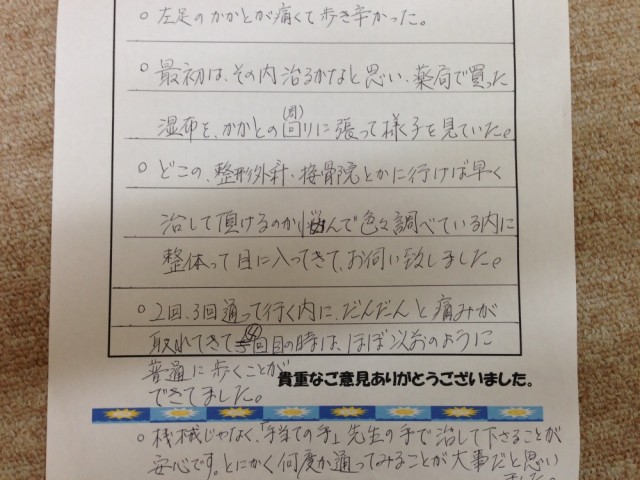 ○ 左足のかかとが痛くて歩き辛かった。
○ 最初は、その内治るかなと思い、薬局で買った
湿布を、かかとの回(周)りに張って様子を見ていた。
○ どこの、整形外科・接骨院とかに行けば早く
治して頂けるのか悩んで色々調べている内に
整体って目に入ってきて、お伺い致しました。
○ 2回、3回通って行く内に、だんだんと痛みが
取れてきて 4回目の時は、ほぼ以前のように
普通に歩くことが
できてました。
貴重なご意見ありがとうございました。
○ 機械じゃなく、「手当ての手」先生の手で治して下さることが
安心です。とにかく何度か通ってみることが大事だと思い
ました。